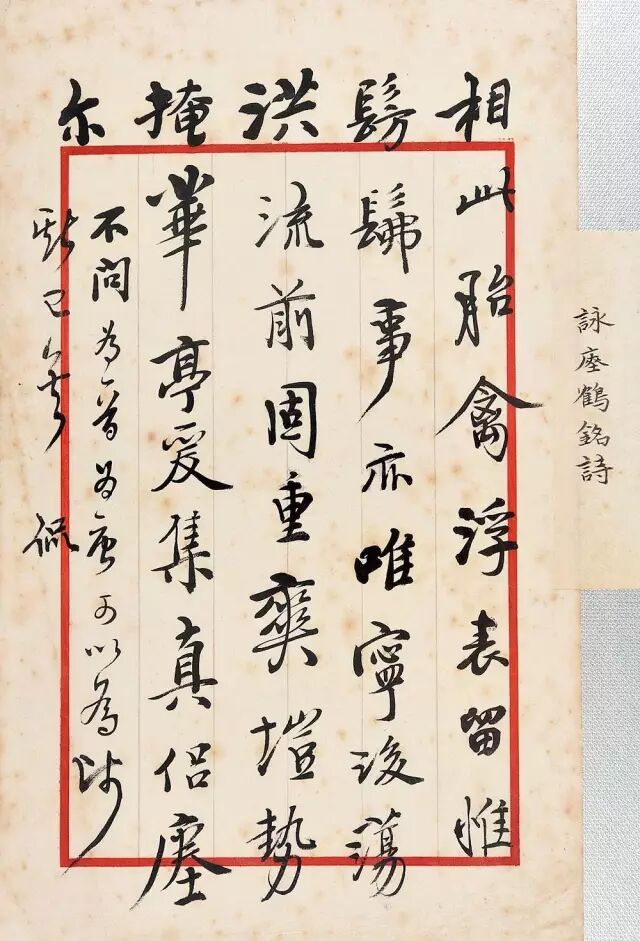 相此胎禽浮表留惟
髣髴事亦唯寧後蕩
洪流前固重爽塏勢
掩華亭爰集真侶瘞
尔
不問為晉為唐可以為師
斯已矣 侃
詠瘞鶴銘詩